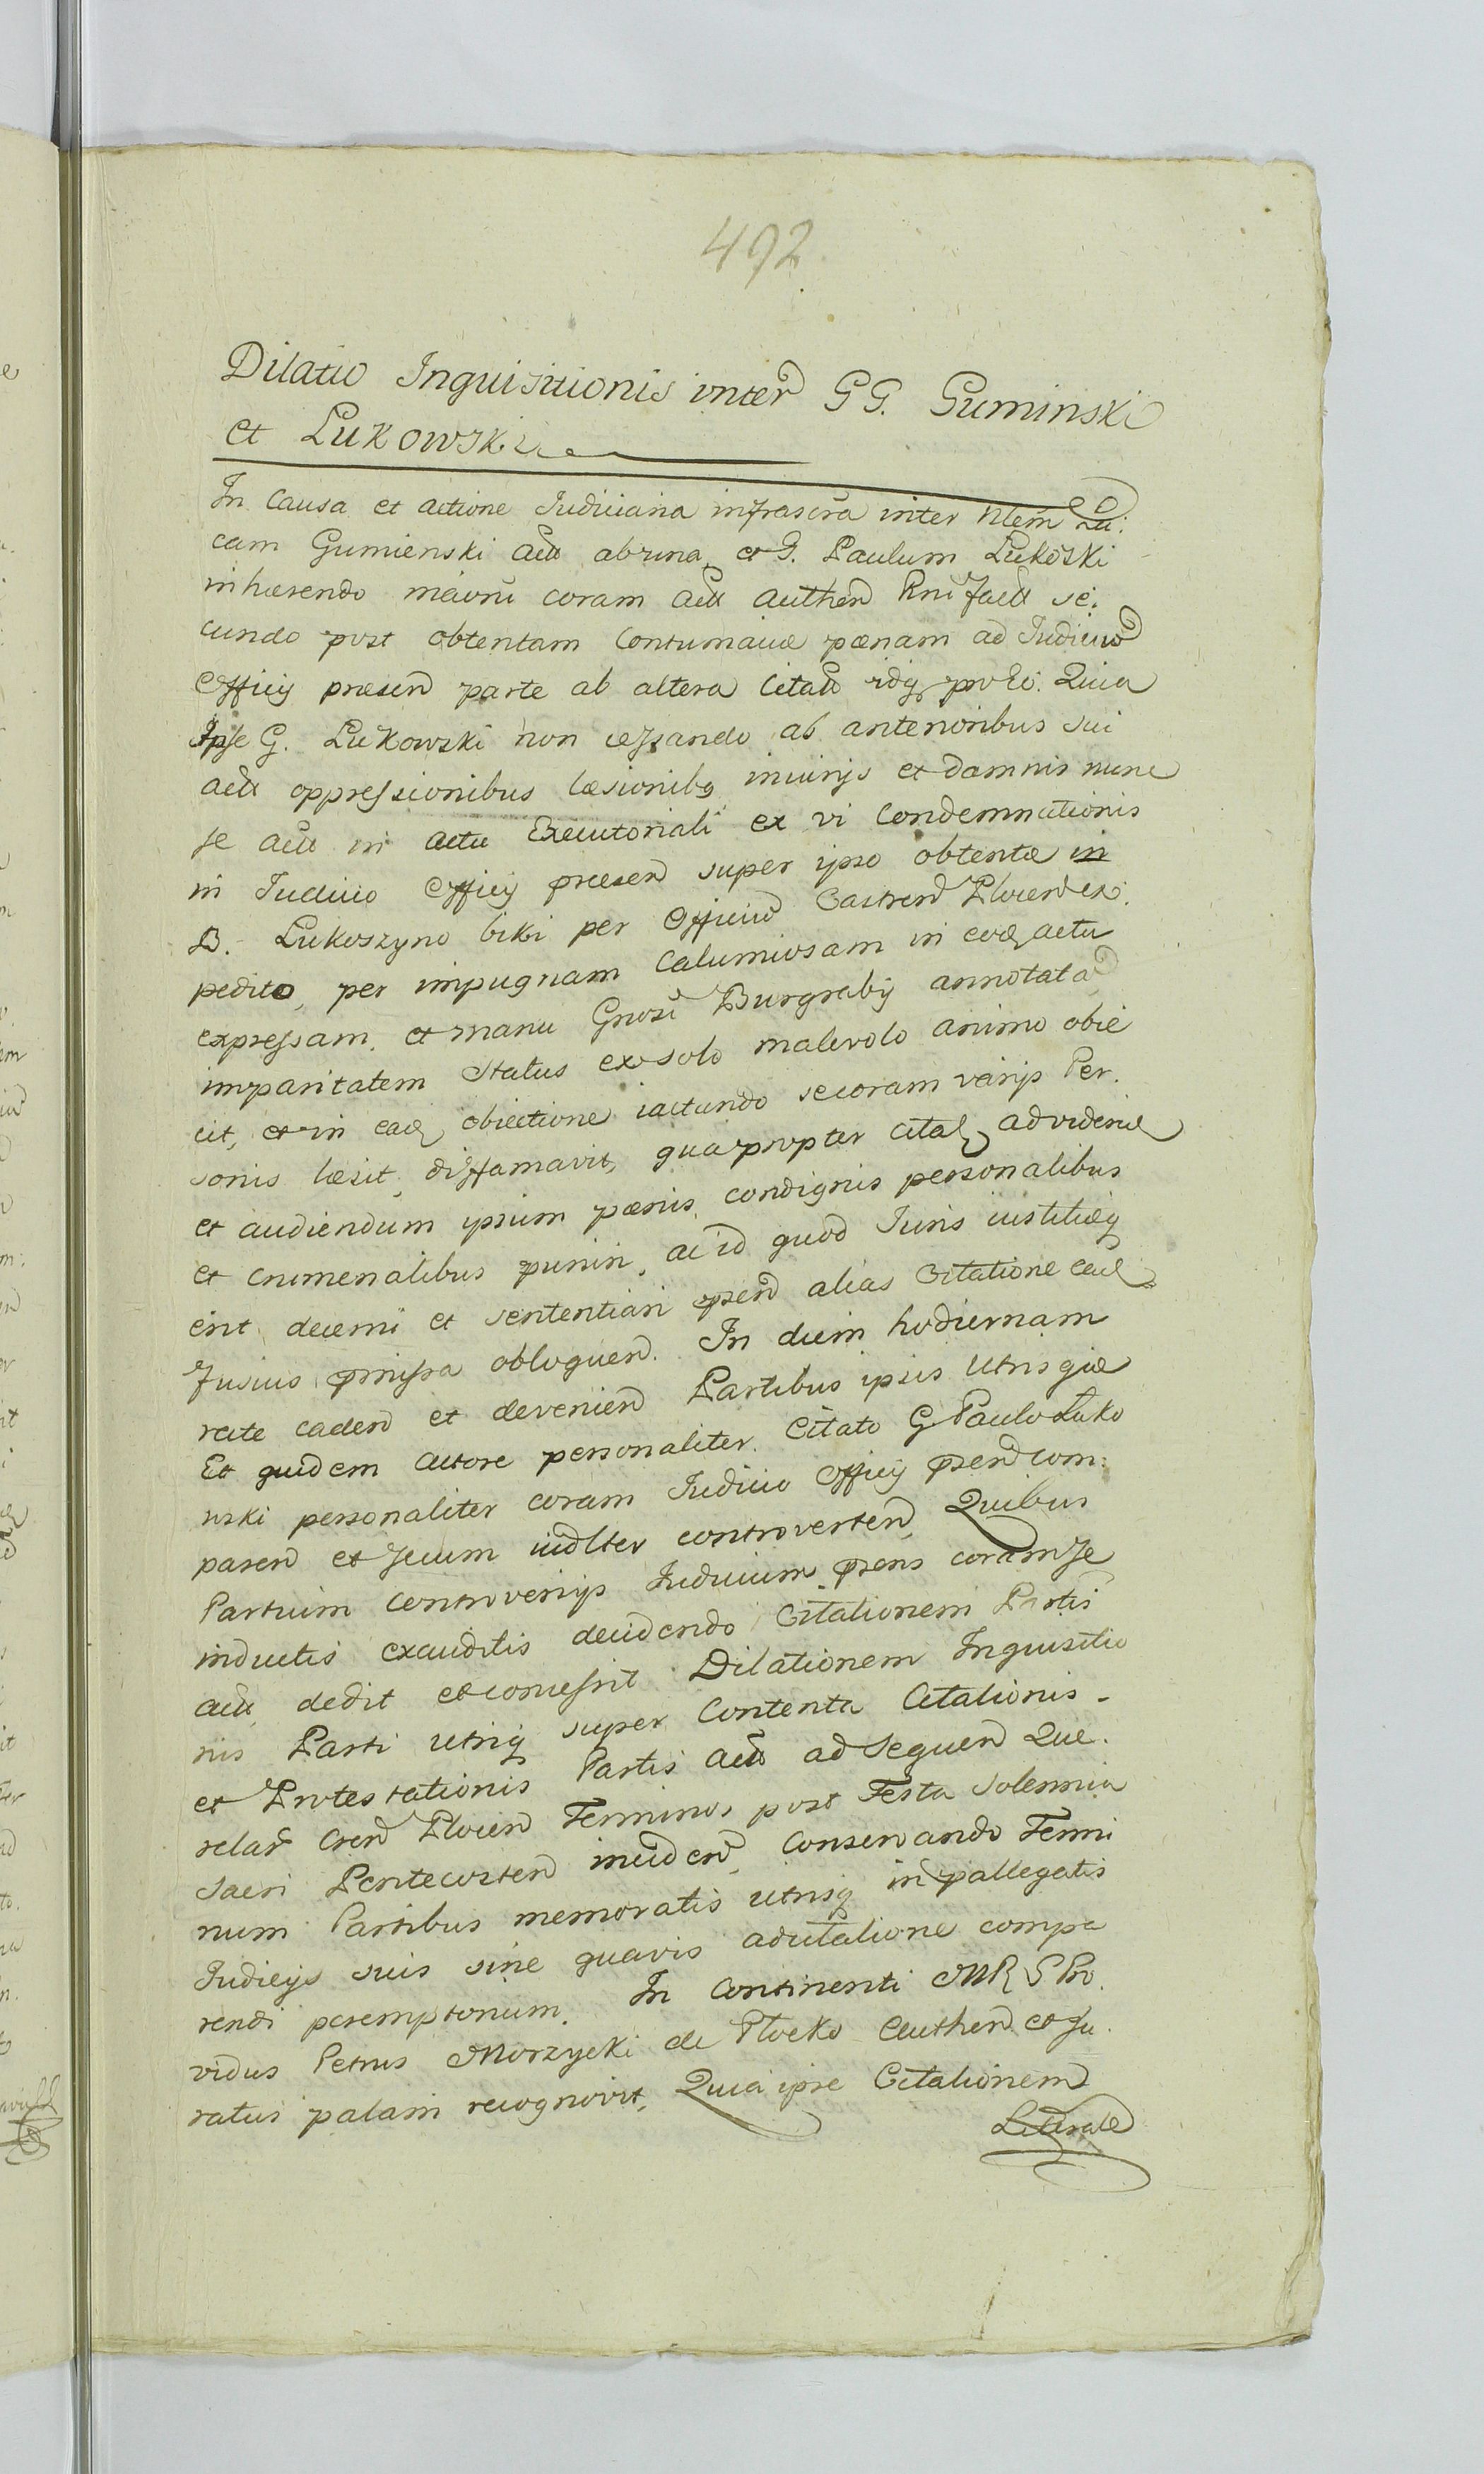 492
Dilatio Inquisitionis inter GG. Guminski
et Lukowski
In Causa et actione Judiciaria infrascra inter Nlem Lu:
cam Gumienski ab una et G. Paulum Lukoski
inhærendo coram Authen se:
cundo post obtentam Contumaciæ pænam ad Judiciu
Officij præsen parte ab altera Citatt idq Quia
Ipse G. Lukowski non cessando ab anterioribus sui
actt oppressionibus læsionibq iniurijs et damnis nunc
se actt in actu Executoriali ex vi Condemnationis
in Judicio Officij præsen super ipso obtentæ in
B. Lukoszyno biki per Officiu Castren Plocen ex:
pedito, per impugnam Calumiosam in eodq actu
expressam, et manu Gnosi Burgrabij annotata
imparitatem Status ex solo malevolo animo obie
cit, et in eadq obiectione iactando se coram varijs Per:
sonis læsit, diffamavit, quapropter citatq ad videndu
et audiendum ipsum pænis condignis personalibus
et criminalibus puniri, ac id quod Juris iustitiæq
erit decerni et sententiari psen alias Citatione eadq
fusius pmissa obloquen. In diem hodiernam
rite caden et devenien Partibus ipsis Utrisque
Et quidem Actore personaliter. Citato G Paulo Luko
wski personaliter coram Judicio Officij psen com:
paren et secum iudlter controverten, Quibus
Partium controversijs Judicium psens coram se
inductis exauditis decidendo Citationem Partis
actt, dedit et concessit Dilationem Inquisitio
nis Parti utriq super Contenta Citationis
et Protestationis Partis actt ad sequen Que:
relar Cren Plocen Terminos post Festa Solennia
Sacri Pentecosten inciden, Conservando Termi
num Partibus memoratis utrisq in pallegatis
Judicijs suis sine quavis adcitatione compa
rendi peremptorium. In Continenti MR S Pro:
vidus Petrus Morzycki de Plocko Authen et Ju:
ratus palam recognovit, Quia ipse Citationem
Literale